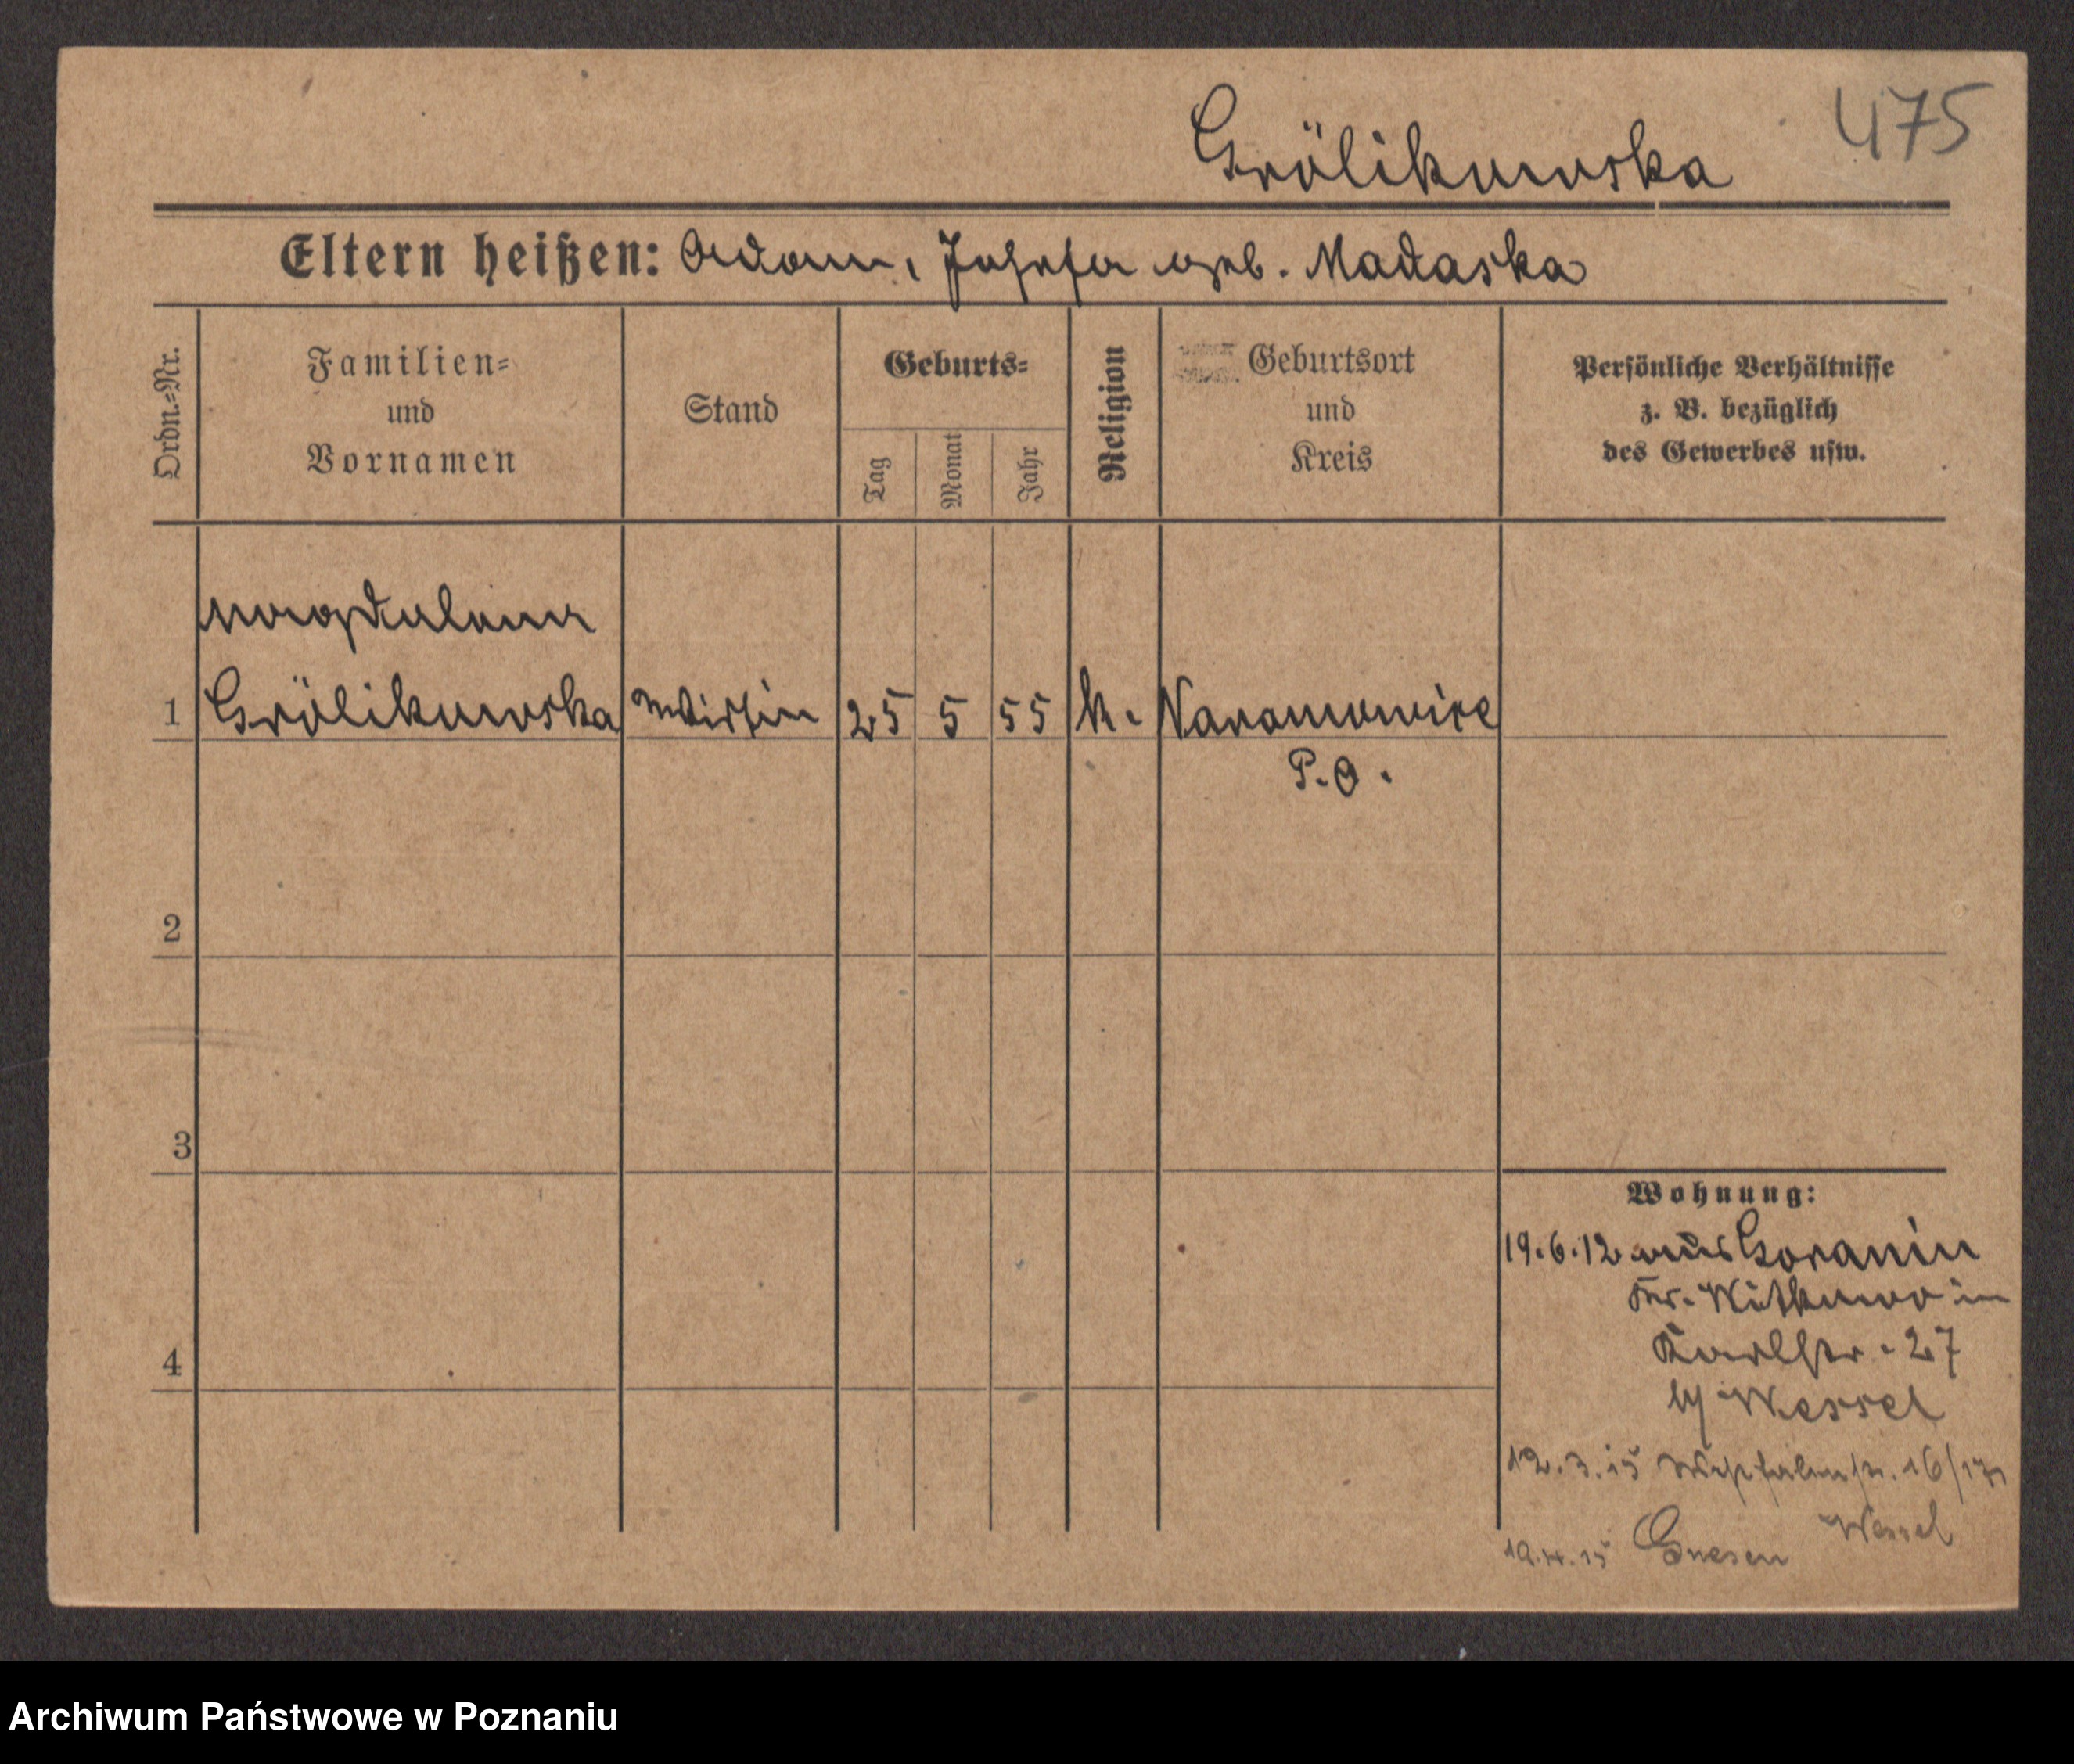 475
Grölikowska
Eltern heißen: Adam, Josefa geb. Madaska
Ordn.-Nr.
Familien-
und
Vornamen
Stand
Geburts-
Tag
Monat
Jahr
Religion
Geburtsort
und
Kreis
Persönliche Verhältnisse
z. B. bezüglich
des Gewerbes usw.
Magdalena
1 Grölikowska 25 5 55 k. Naramowice
P.O.
2
3
4
Wohnung:
19.6.12 aus Goranin
Kr. Witkowo in
Karlstr. 27
b/ Wessel
12.3.15 Westfalenstr. 16/17
Wessel
Gnesen
Archiwum Państwowe w Poznaniu